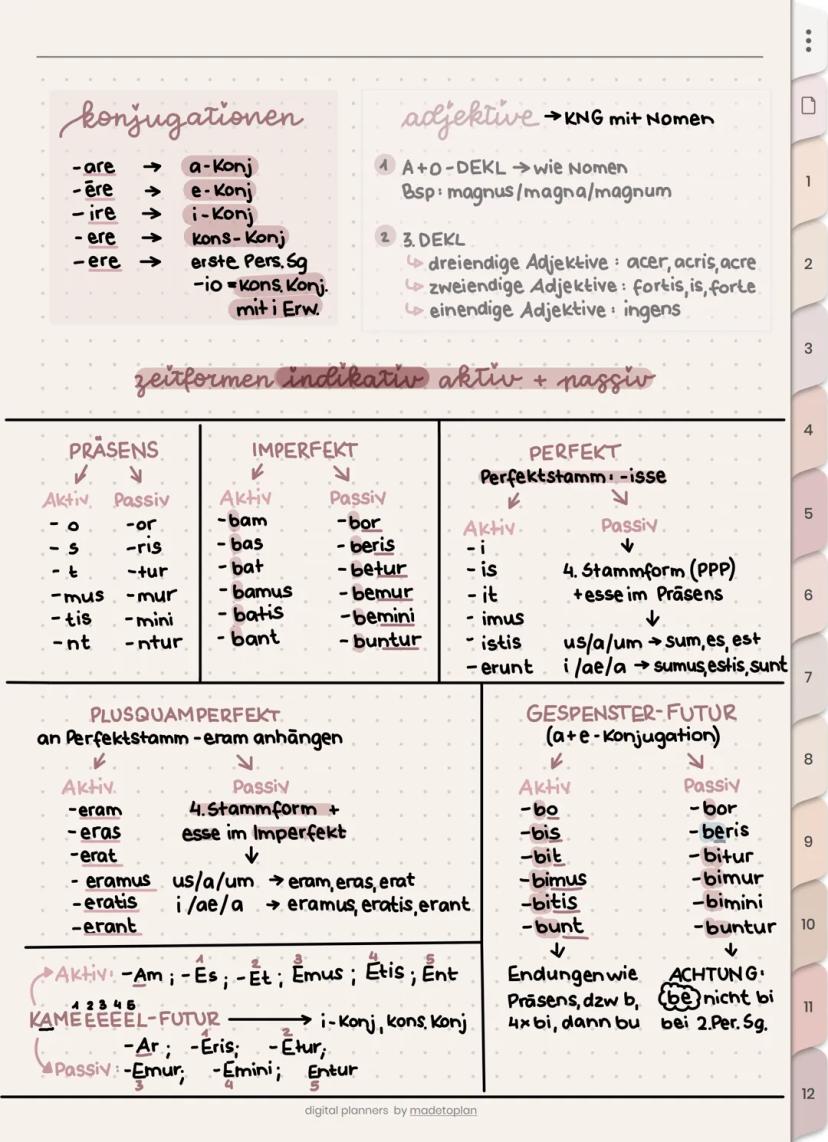 konjugationen
-are → a-Konj
-ēre → e-Konj
-ire → i-Konj
-ere → kons-Konj
-ere → erste Pers. Sg
-io = Kons. Konj.
mit i Erw.
adjektive → KNG mit Nomen
1 A+O-DEKL → wie Nomen
Bsp: magnus/magna/magnum
2 3. DEKL
↳ dreiendige Adjektive: acer, acris, acre
↳ zweiendige Adjektive: fortis, is, forte
↳ einendige Adjektive: ingens
zeitformen indikativ aktiv + passiv
PRÄSENS
Aktiv Passiv
-o -or
-s -ris
-t -tur
-mus -mur
-tis -mini
-nt -ntur
IMPERFEKT
Aktiv Passiv
-bam -bor
-bas -beris
-bat -betur
-bamus -bemur
-batis -bemini
-bant -buntur
PERFEKT
Perfektstamm: -isse
Aktiv Passiv
-i
-is 4. Stammform (PPP)
-it +esse im Präsens
-imus
-istis us/a/um → sum, es, est
-erunt i/ae/a → sumus, estis, sunt
PLUSQUAMPERFEKT
an Perfektstamm -eram anhängen
Aktiv Passiv
-eram 4. Stammform +
-eras esse im Imperfekt
-erat
-eramus us/a/um → eram, eras, erat
-eratis i/ae/a → eramus, eratis, erant
-erant
GESPENSTER-FUTUR
(a+e-Konjugation)
Aktiv Passiv
-bo -bor
-bis -beris
-bit -bitur
-bimus -bimur
-bitis -bimini
-bunt -buntur
Endungen wie
Präsens, dzw b,
4x bi, dann bu
ACHTUNG:
be nicht bi
bei 2. Per. Sg.
1 2 3 4 5
Aktiv: -Am; -Es; -Et; Emus; Etis; Ent
1 2 3 4 5
KAMEEEEEL-FUTUR → i-Konj, kons. Konj
1 2
-Ar; -Eris; -Etur;
Passiv: -Emur; -Emini; Entur
3 4 5
digital planners by madetoplan
1
2
3
4
5
6
7
8
9
10
11
12